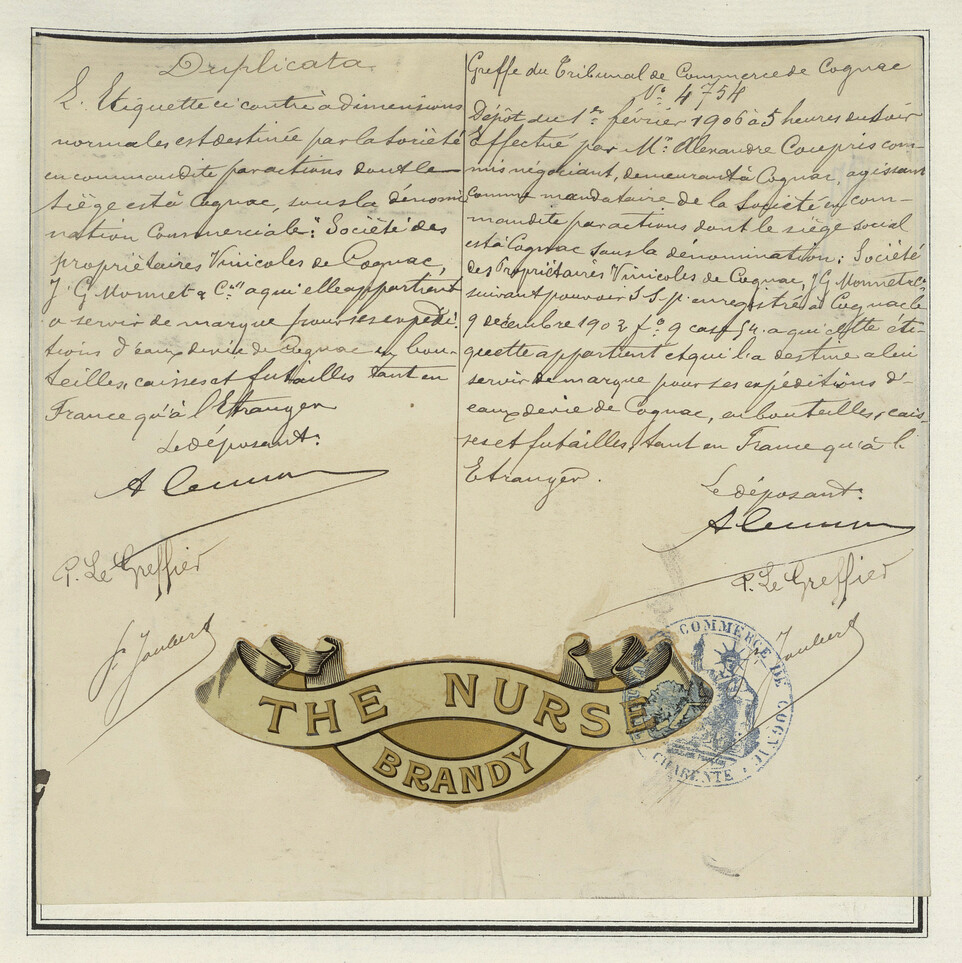 Duplicata
L'Etiquette ci contre à dimensions
normales est destinée par la Société
en commandite par actions dont le
siège est à Cognac, sous la dénomi
nation Commerciale: "Société des
propriétaires Vinicoles de Cognac,
J. G Monnet & Cie" à qui elle appartient
a servir de marque pour ses expédi-
tions d'eaux de vie de Cognac en bou-
teilles, caisses et futailles tant en
France qu'à l'Etranger
Le déposant:
P. Le Greffier
J. Joubert
Greffe du Tribunal de Commerce de Cognac
No. 4754
Dépôt du 1er février 1906 à 5 heures du soir
Effectué par Mr. Alexandre Coupris com-
mis négociant, demeurant à Cognac, agissant
comme mandataire de la Société en com-
mandite par actions dont le siège social
est à Cognac sous la dénomination: Société
des Propriétaires Vinicoles de Cognac, J G Monnet & Cie
suivant pouvoir S.S.p. enregistré à Cognac le
9 décembre 1902 fo. 9 case 54. a qui cette éti-
quette appartient et qui l'a destine a lui
servir de marque pour ses expéditions d'
eaux de vie de Cognac, en bouteilles, cais-
ses et futailles, tant en France qu'à l'
Etranger.
Le déposant:
P. Le Greffier
Joubert
THE NURSE
BRANDY
COMMERCE DE COGNAC
CHARENTE